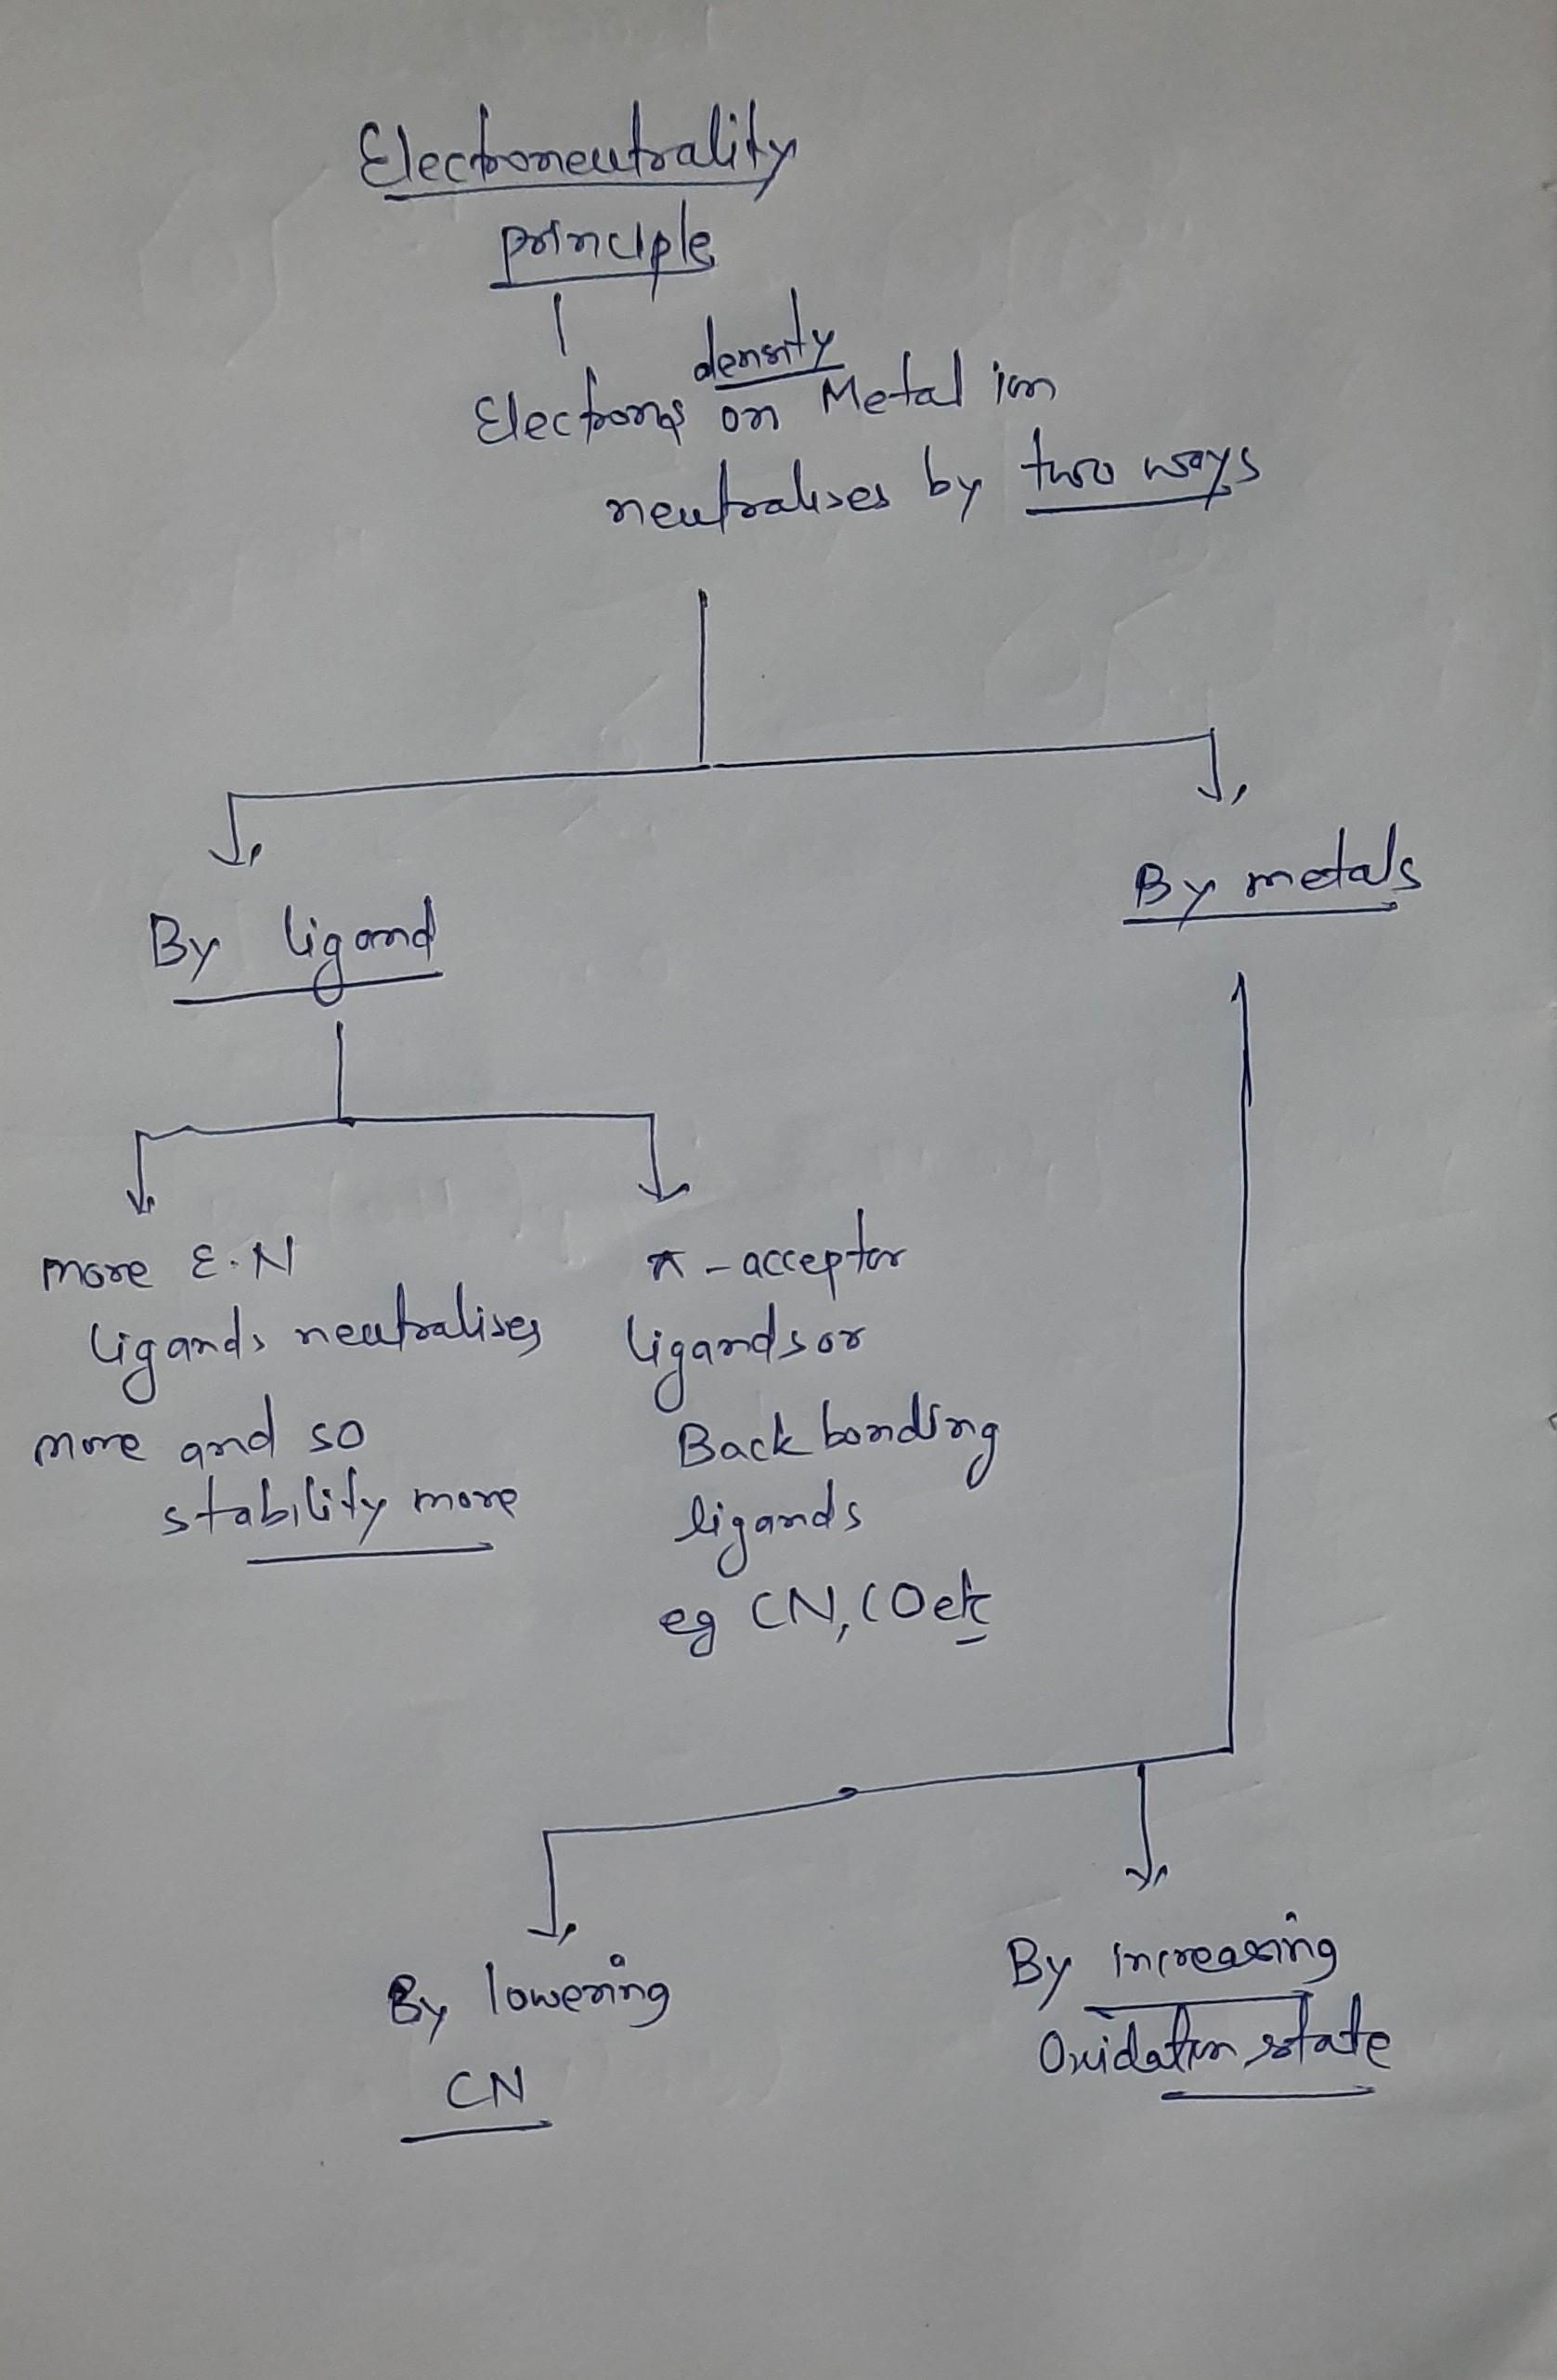 Electroneutrality
principle
density
Electrons on Metal ion
neutralises by two ways
By ligand
By metals
more E.N
ligands neutralises
more and so
stability more
π-acceptor
ligands or
Back bonding
ligands
eg CN, CO etc
By lowering
CN
By increasing
Oxidation state